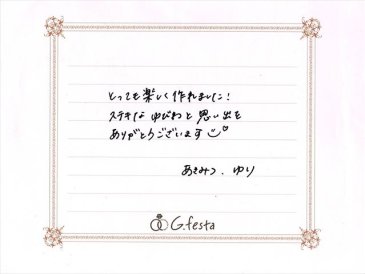 とっても楽しく作れました!
ステキなゆびわと思い出を
ありがとうございます
あきみつ.ゆり
G.festa